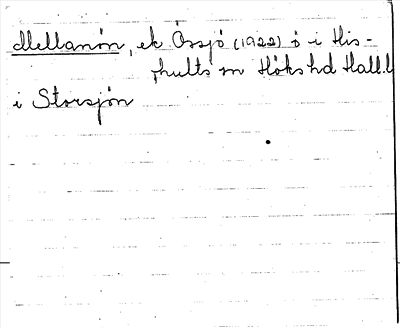 Mellanön, ek Össjö (1922) ö i His-
hults sn Höks hd Hall.l
i Storsjön